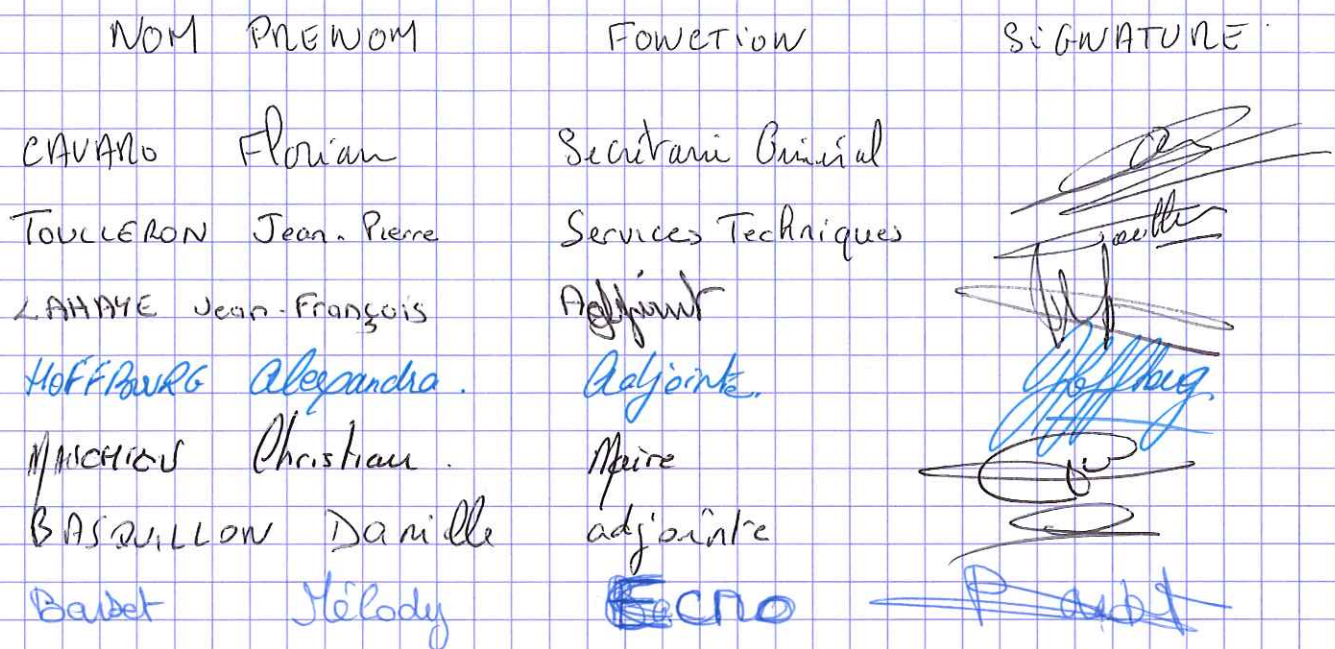 NOM PRENOM FONCTION SIGNATURE
CAVARO Florian Secrétaire Général
TOULLERON Jean-Pierre Services Techniques
LAHAYE Jean-François Adjoint
HOFFBOURG Alexandra. Adjointe.
Christian. Maire
BASQUILLON Danielle adjointe
Barbet Mélody